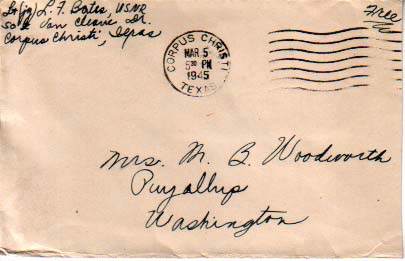 Lt(jg) L. F. Bates, USNR
Van Cleave Dr.
Corpus Christi, Texas
CORPUS CHRISTI
MAR 5
5 30 PM
1945
TEXAS
Free
Mrs. M. B. Woodworth
Puyallup
Washington